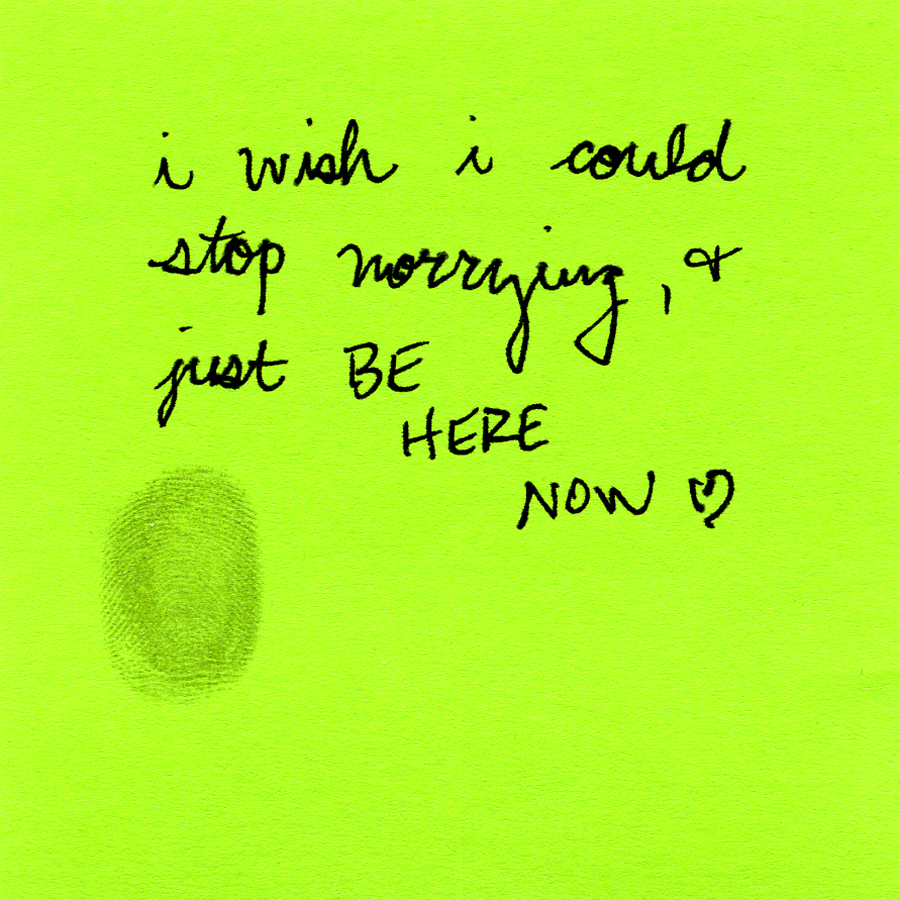 i wish i could
stop worrying, &
just BE
HERE
NOW ♡